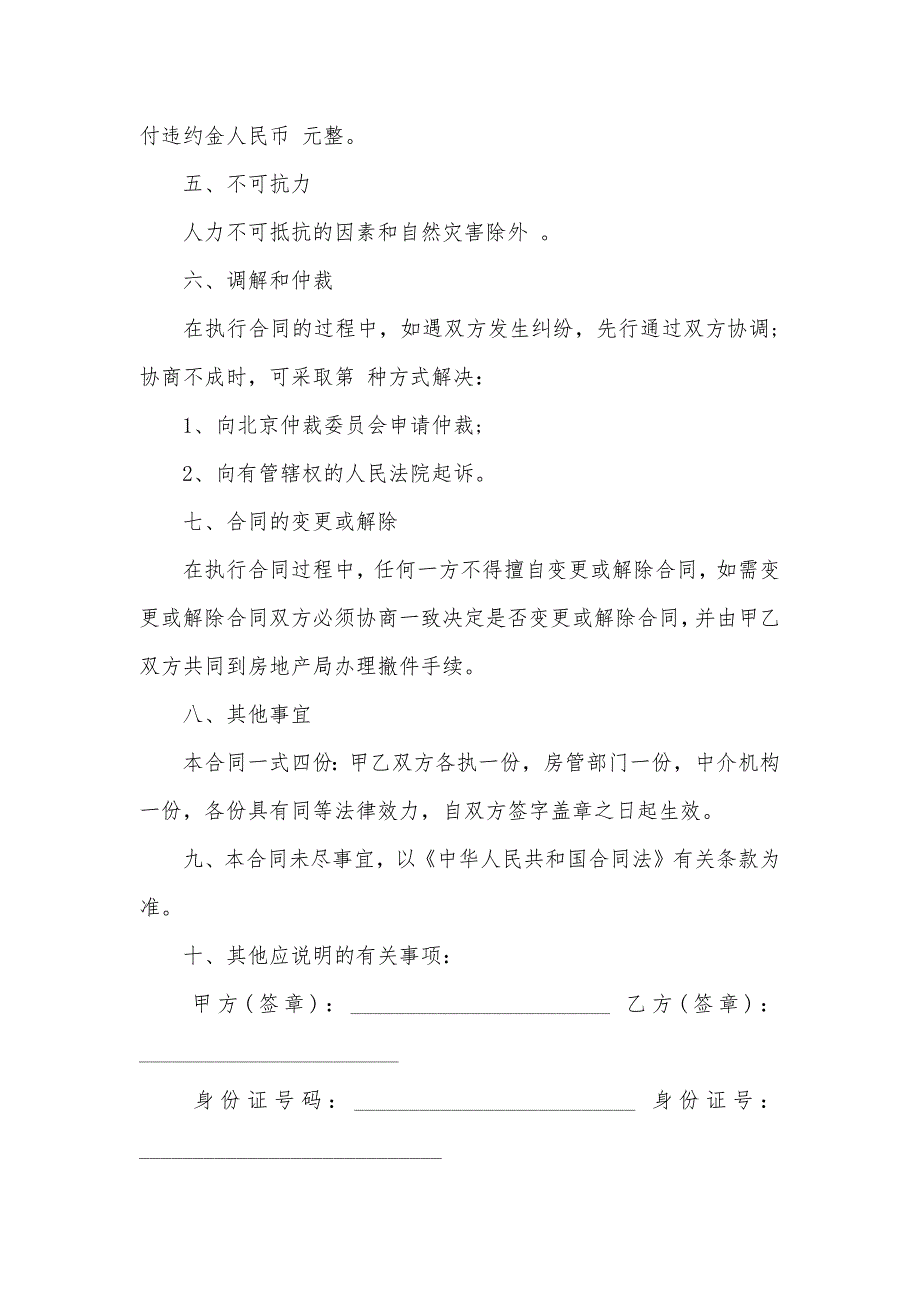 付违约金人民币 元整。
五、不可抗力
人力不可抵抗的因素和自然灾害除外 。
六、调解和仲裁
在执行合同的过程中，如遇双方发生纠纷，先行通过双方协调;
协商不成时，可采取第 种方式解决：
1、向北京仲裁委员会申请仲裁;
2、向有管辖权的人民法院起诉。
七、合同的变更或解除
在执行合同过程中，任何一方不得擅自变更或解除合同，如需变
更或解除合同双方必须协商一致决定是否变更或解除合同，并由甲乙
双方共同到房地产局办理撤件手续。
八、其他事宜
本合同一式四份：甲乙双方各执一份，房管部门一份，中介机构
一份，各份具有同等法律效力，自双方签字盖章之日起生效。
九、本合同未尽事宜，以《中华人民共和国合同法》有关条款为
准。
十、其他应说明的有关事项：
甲方(签章)：________________________ 乙方(签章)：
________________________
身份证号码：__________________________ 身份证号：
____________________________